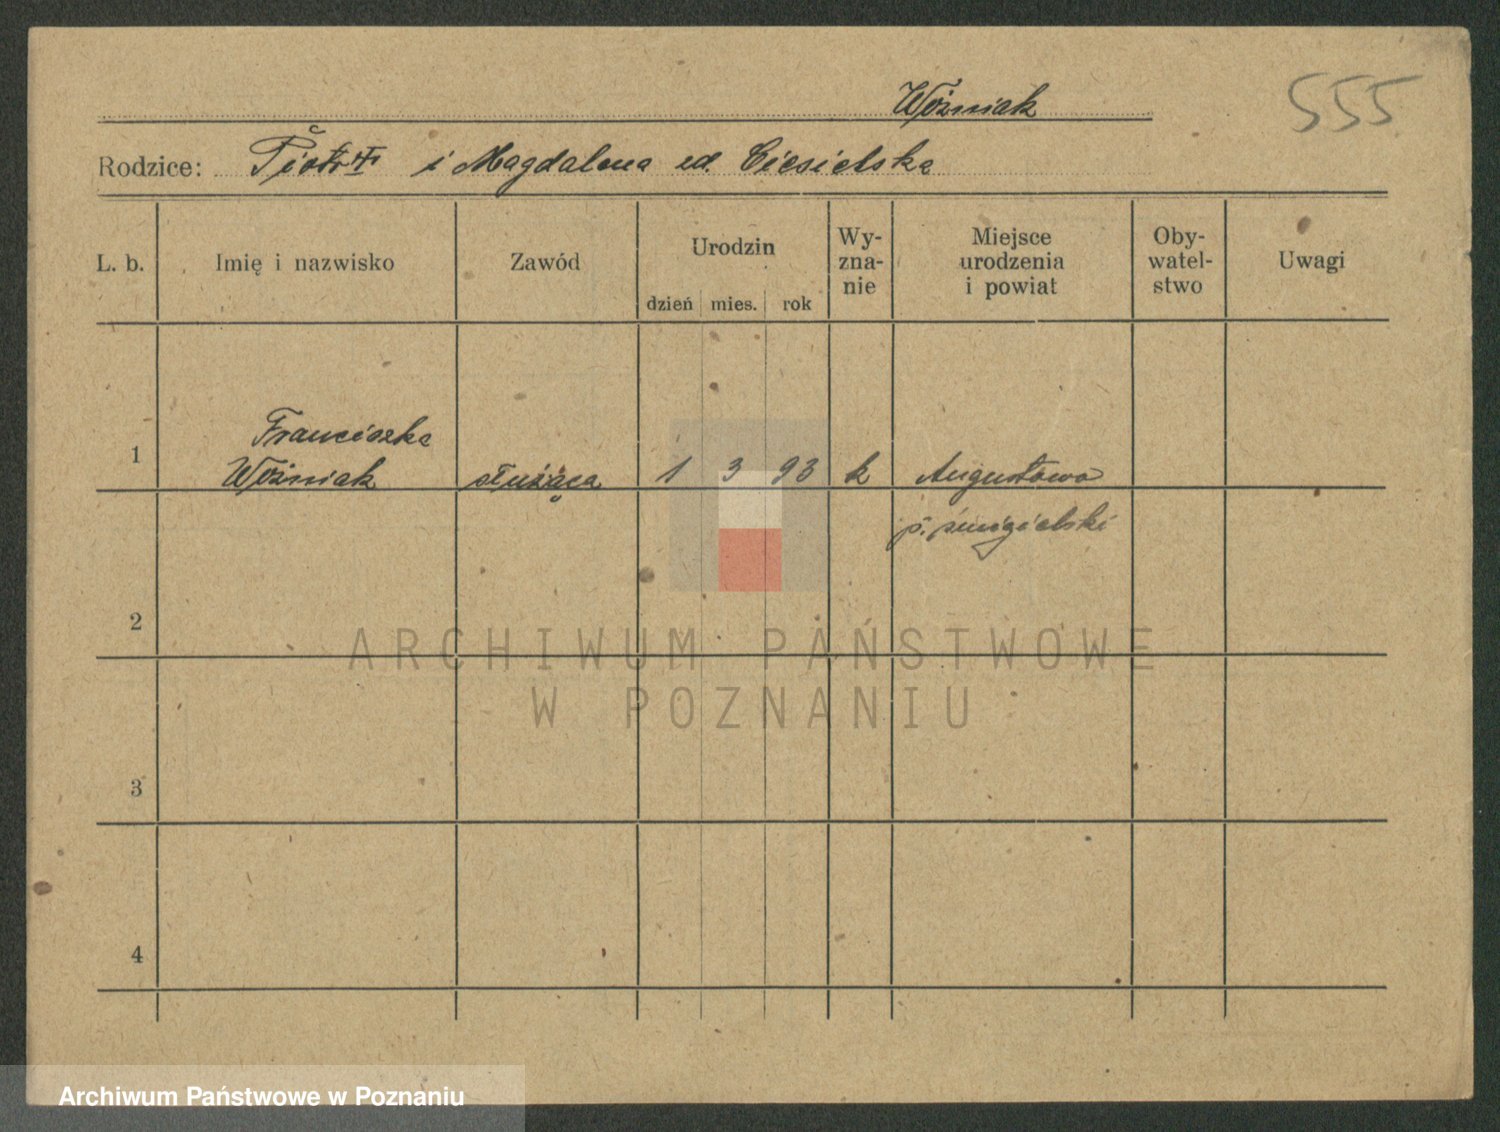 Woźniak
555
Rodzice: Piotr i Magdalena ed. Ciesielska
L. b. Imię i nazwisko Zawód Urodzin Wy-zna-nie Miejsce urodzenia i powiat Oby-watel-stwo Uwagi
dzień mies. rok
Franciszka
1 Woźniak służąca 1 3 93 k Augustowo
p. śmigielski
2
ARCHIWUM PAŃSTWOWE
W POZNANIU
3
4
Archiwum Państwowe w Poznaniu